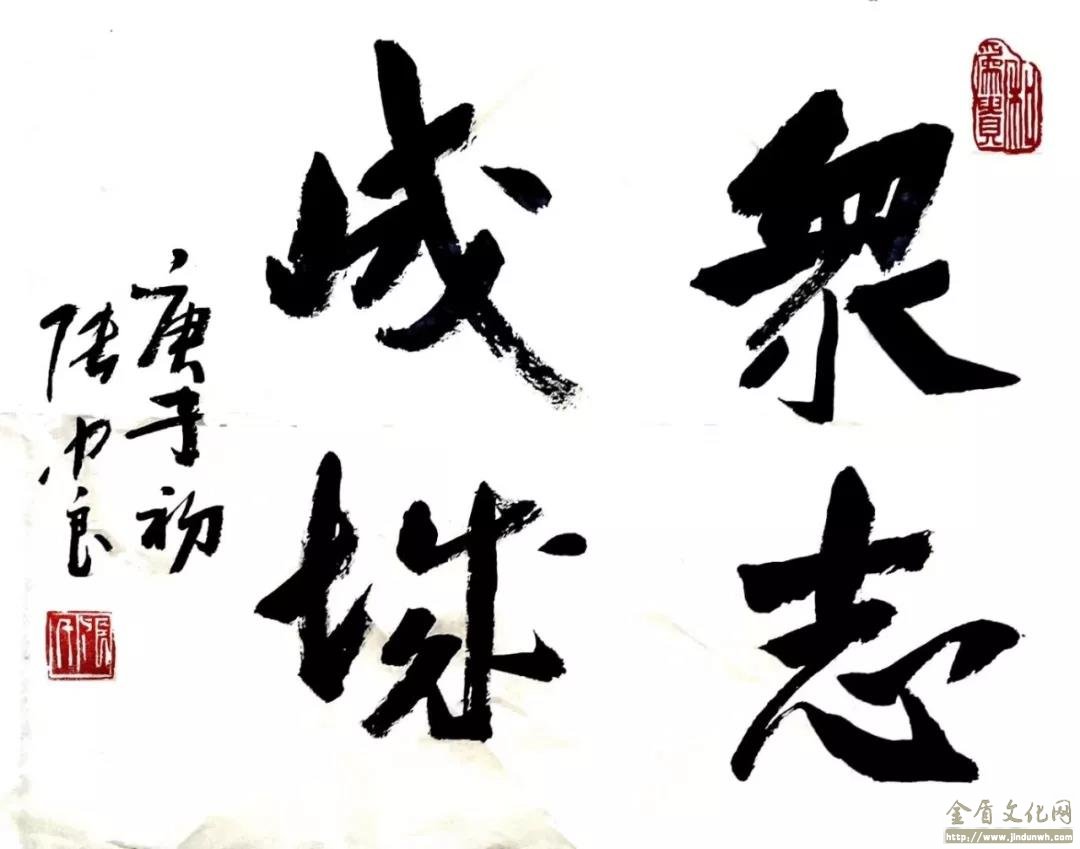 衆志
成城
庚子初
张良
和
為貴
金盾文化网
http://www.jindunwh.com